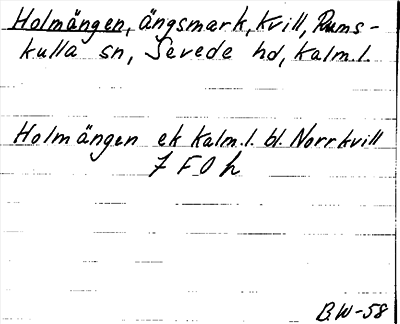 Holmängen, ängsmark, Kvill, Rums-
kulla sn, Sevede hd, Kalm.l.
Holmängen ek Kalm.l. bl. Norrkvill
7 F 0 h
B.W-58